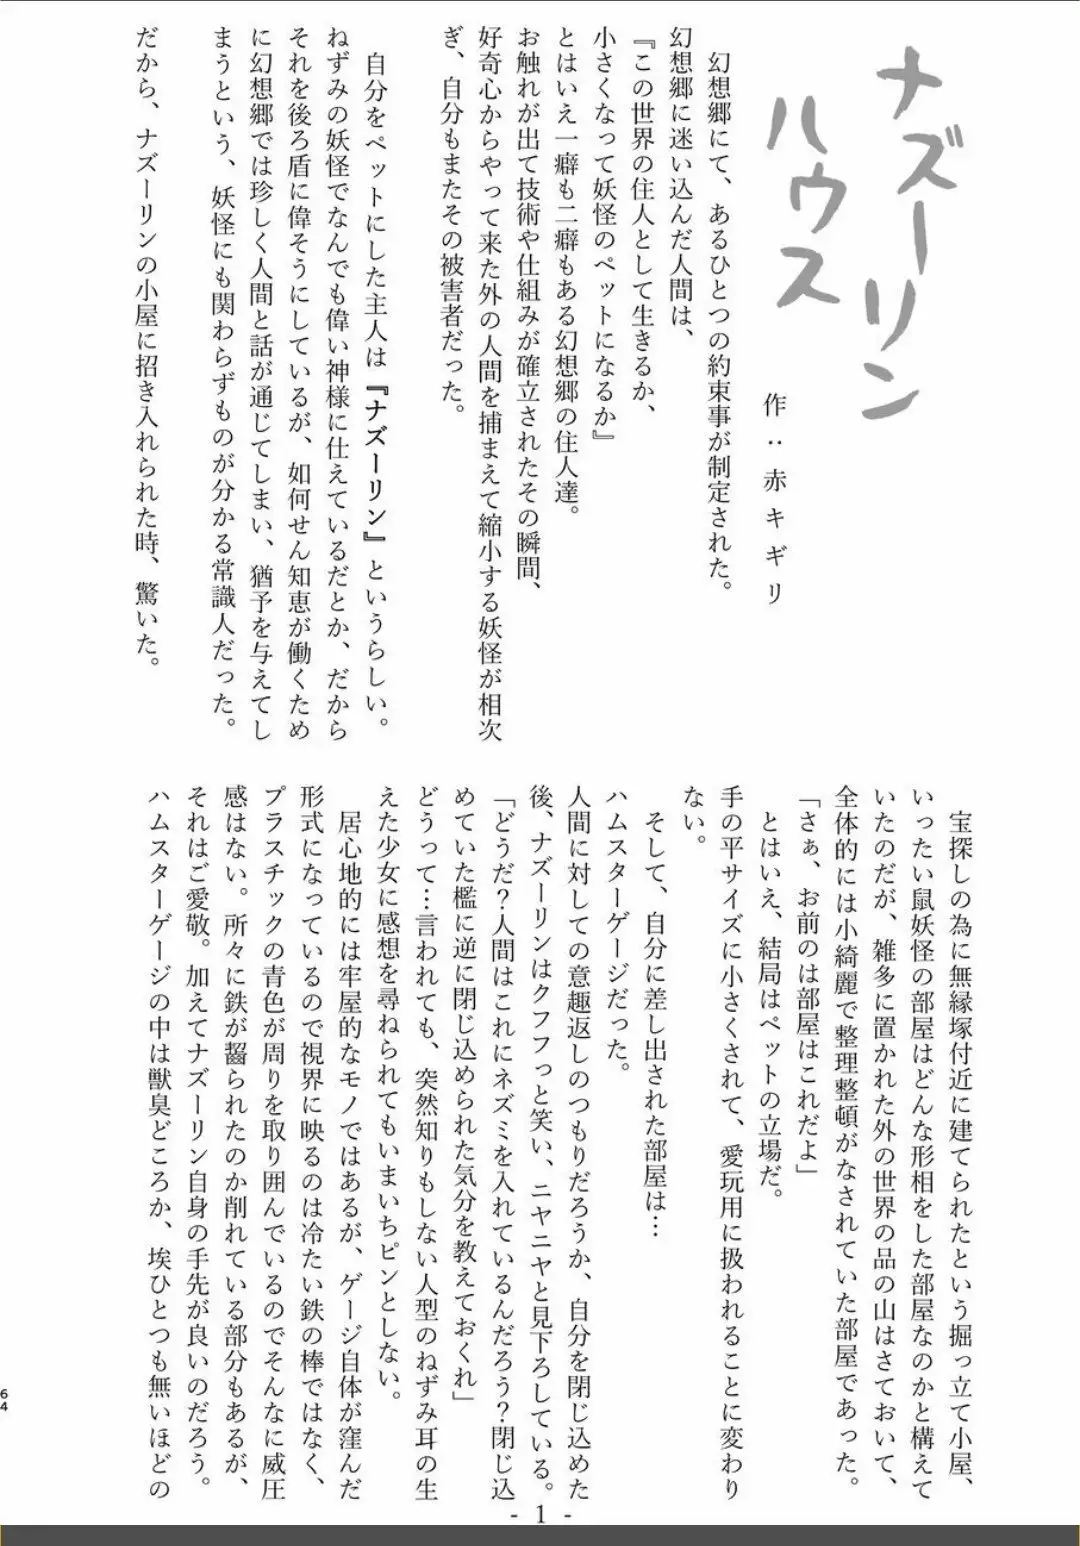 ナズーリン
ハウス
作：赤キギリ
幻想郷にて、あるひとつの約束事が制定された。
幻想郷に迷い込んだ人間は、
『この世界の住人として生きるか、
小さくなって妖怪のペットになるか』
とはいえ一癖も二癖もある幻想郷の住人達。
お触れが出て技術や仕組みが確立されたその瞬間、
好奇心からやって来た外の人間を捕まえて縮小する妖怪が相次
ぎ、自分もまたその被害者だった。
自分をペットにした主人は『ナズーリン』というらしい。
ねずみの妖怪でなんでも偉い神様に仕えているだとか、だから
それを後ろ盾に偉そうにしているが、如何せん知恵が働くため
に幻想郷では珍しく人間と話が通じてしまい、猶予を与えてし
まうという、妖怪にも関わらずものが分かる常識人だった。
だから、ナズーリンの小屋に招き入れられた時、驚いた。
宝探しの為に無縁塚付近に建てられたという掘っ立て小屋、
いったい鼠妖怪の部屋はどんな形相をした部屋なのかと構えて
いたのだが、雑多に置かれた外の世界の品の山はさておいて、
全体的には小綺麗で整理整頓がなされていた部屋であった。
「さぁ、お前のは部屋はこれだよ」
とはいえ、結局はペットの立場だ。
手の平サイズに小さくされて、愛玩用に扱われることに変わり
ない。
そして、自分に差し出された部屋は…
ハムスターゲージだった。
人間に対しての意趣返しのつもりだろうか、自分を閉じ込めた
後、ナズーリンはクフフっと笑い、ニヤニヤと見下ろしている。
「どうだ？人間はこれにネズミを入れているんだろう？閉じ込
めていた檻に逆に閉じ込められた気分を教えておくれ」
どうって…言われても、突然知りもしない人型のねずみ耳の生
えた少女に感想を尋ねられてもいまいちピンとしない。
居心地的には牢屋的なモノではあるが、ゲージ自体が窪んだ
形式になっているので視界に映るのは冷たい鉄の棒ではなく、
プラスチックの青色が周りを取り囲んでいるのでそんなに威圧
感はない。所々に鉄が齧られたのか削れている部分もあるが、
それはご愛敬。加えてナズーリン自身の手先が良いのだろう。
ハムスターゲージの中は獣臭どころか、埃ひとつも無いほどの
- 1 -
64